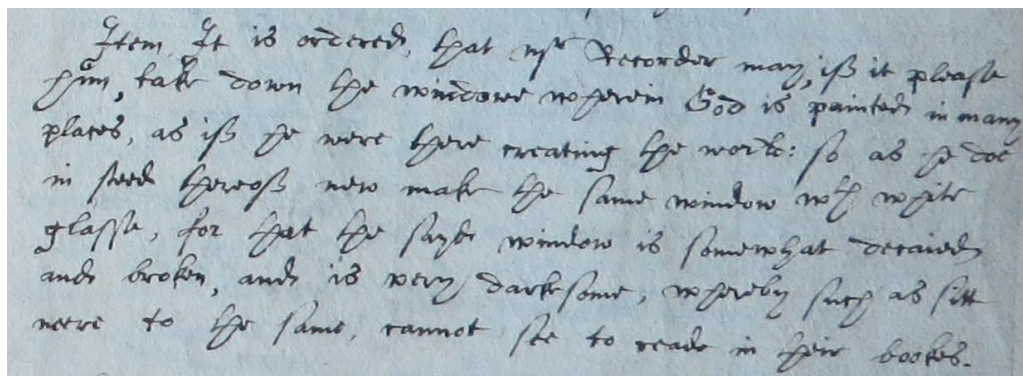 Item, It is ordered, that mr Recorder may, iff it please
him, take down the windowe wherein God is painted in many
places, as iff he were there creating the world: so as he doe
in steed thereoff new make the same window wth white
glasse, for that the sayd window is somewhat decaied
and broken, and is very darksome, whereby such as sitt
neere to the same, cannot see to reade in their bookes.